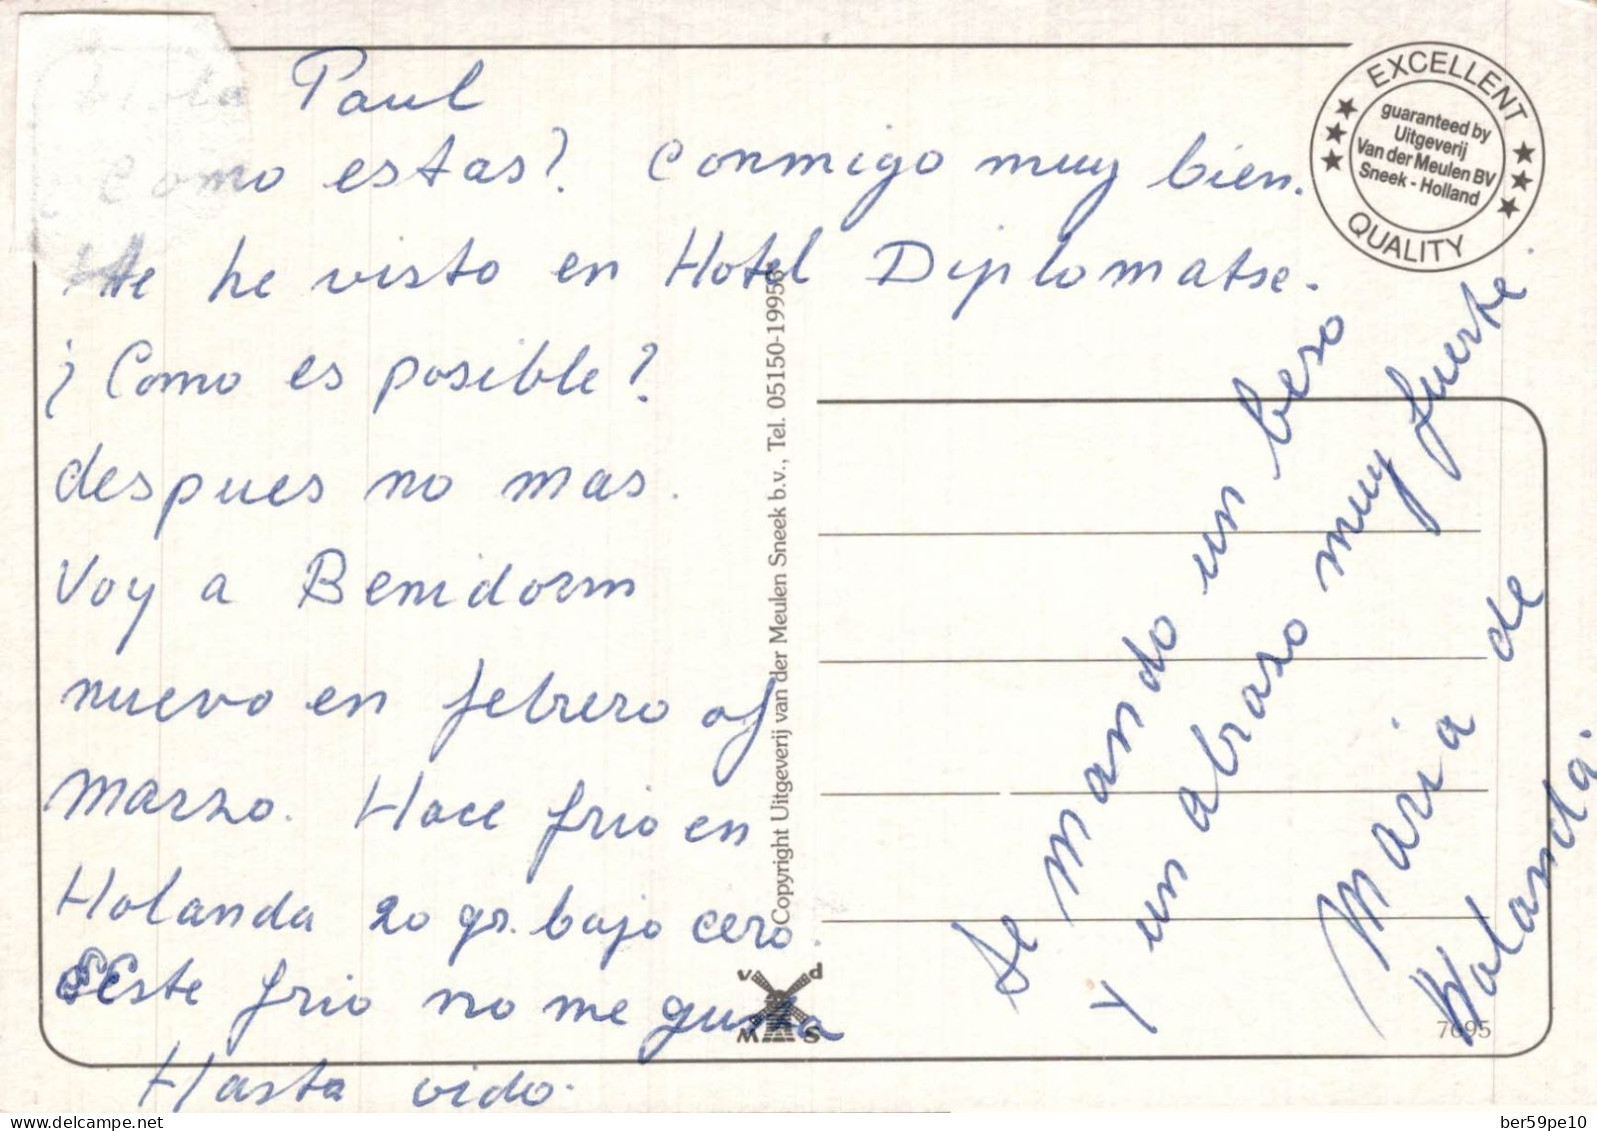 Hola Paul
Como estas? Conmigo muy bien.
Te he visto en Hotel Diplomatse.
¿Como es posible?
despues no mas.
Voy a Benidorm
nuevo en febrero of
Marzo. Hace frio en
Holanda 20 gr. bajo cero.
Este frio no me gusta
Hasta vido.
Te mando un beso
Y un abraso muy fuerte.
Maria de
Holanda.
EXCELLENT
guaranteed by
Uitgeverij
Van der Meulen BV
Sneek - Holland
QUALITY
Copyright Uitgeverij van der Meulen Sneek b.v., Tel. 05150-19956
v d
M S
7695
delcampe.net
ber59pe10